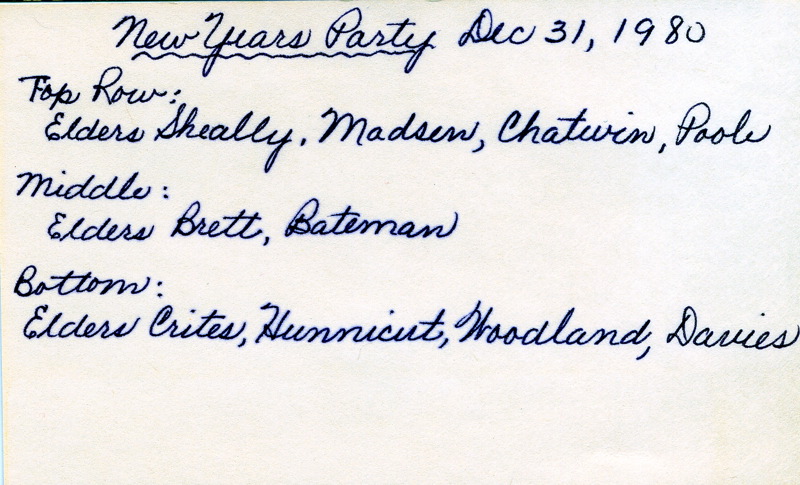 New Years Party Dec 31, 1980
Top Row:
Elders Sheally, Madsen, Chatwin, Poole
Middle:
Elders Brett, Bateman
Bottom:
Elders Crites, Hunnicut, Woodland, Davies